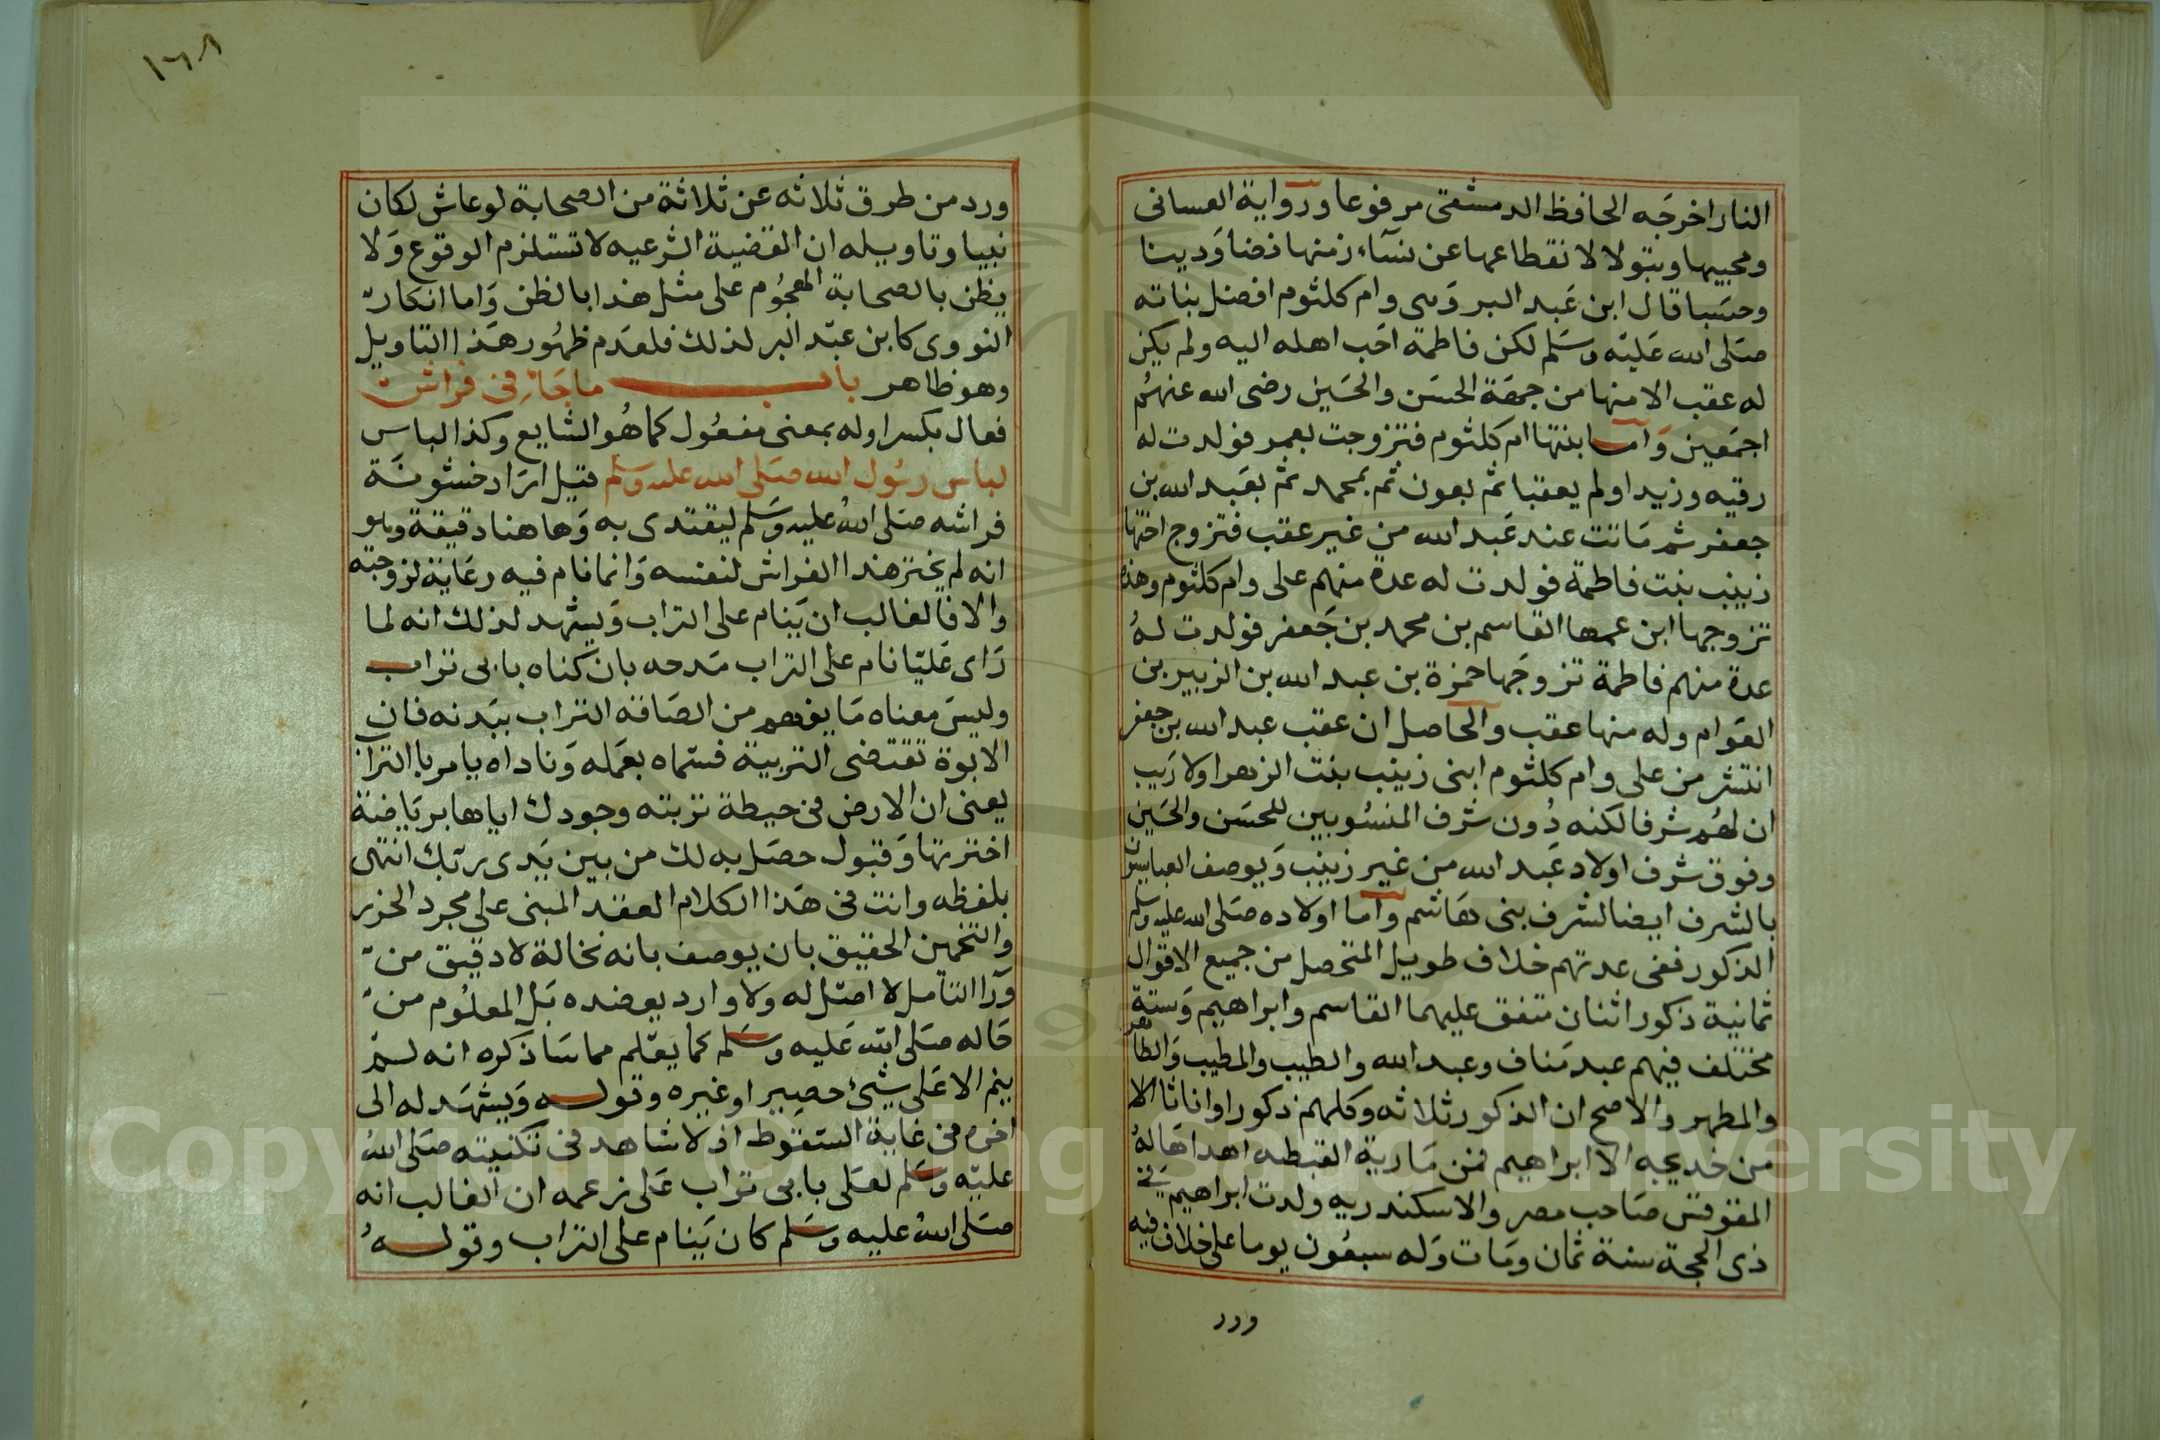 النار اخرجه الحافظ الدمشقى مرفوعا ورواية الغسانى
ومحبيها وبتولا لانقطاعها عن نسآء زمنها فضلا ودينا
وحسبا قال ابن عبد البر وهى وام كلثوم افضل بناته
صلى الله عليه وسلم لكن فاطمة احب اهله اليه ولم يكن
له عقب الا منها من جهة الحسن والحسين رضى الله عنهم
اجمعين واما بنتها ام كلثوم فتزوجت بعمر فولدت له
رقيه وزيدا ولم يعقبا ثم بعون ثم بمحمد ثم بعبد الله بن
جعفر ثم ماتت عند عبد الله من غير عقب فتزوج اختها
زينب بنت فاطمة فولدت له عدة منهم على وام كلثوم وهذه
تزوجها ابن عمها القاسم بن محمد بن جعفر فولدت له
عدة منهم فاطمة تزوجها حمزة بن عبد الله بن الزبير بن
العوام وله منها عقب والحاصل ان عقب عبد الله بن جعفر
انتشر من على وام كلثوم ابنى زينب بنت الزهرا ولا ريب
ان لهم شرفا لكنه دون شرف المنسوبين للحسن والحسين
وفوق شرف اولاد عبد الله من غير زينب ويوصف العباسيون
بالشرف ايضا لشرف بنى هاشم واما اولاده صلى الله عليه وسلم
الذكور ففى عدتهم خلاف طويل المتحصل من جميع الاقوال
ثمانية ذكور اثنان متفق عليهما القاسم وابراهيم وستة
مختلف فيهم عبد مناف وعبد الله والطيب والمطيب والطاهر
والمطهر والاصح ان الذكور ثلاثه وكلهم ذكورا واناثا الا
من خديجه الا ابراهيم فمن مارية القبطه اهداها له
المقوقس صاحب مصر والاسكندريه ولدت ابراهيم فى
ذى الحجة سنة ثمان ومات وله سبعون يوما على خلاف فيه
ورد
١٦٨
ورد من طرق ثلاثه عن ثلاثة من الصحابة لو عاش لكان
نبيا وتاويله ان القضية الشرعيه لا تستلزم الوقوع ولا
يظن بالصحابة الهجوم على مثل هذا بالظن واما انكار
النووى كابن عبد البر لذلك فلعدم ظهور هذا التاويل
وهو ظاهر باب ما جاء فى فراش
فعال بكسر اوله بمعنى مفعول كما هو الشايع وكذا لباس
لباس رسول الله صلى الله عليه وسلم قيل اراد خشونة
فراشه صلى الله عليه وسلم ليقتدى به وهاهنا دقيقة وهو
انه لم يختر هذا الفراش لنفسه وانما نام فيه رعاية لزوجته
والا فالغالب ان ينام على التراب ويشهد لذلك انه لما
راى عليا نام على التراب مدحه بان كناه بابى تراب
وليس معناه ما يفهم من الصافه التراب ببدنه فان
الابوة تقتضى التربية فسماه بعمله وناداه يا مربا التراب
يعنى ان الارض فى حيطة تربته وجودك اياها برياضنة
اخترتها وقبول حصل به لك من بين يدى ربك انتهى
بلفظه وانت فى هذا الكلام العقد المبنى على مجرد الحزر
والتخمين الحقيق بان يوصف بانه نخالة لا دقيق من
ورآ التامل لا اصل له ولا وارد يعضده بل المعلوم من
حاله صلى الله عليه وسلم كما يعلم مما ساذكره انه لم
ينم الا على شيئ حصير او غيره وقوله ويشهد له الى
اخره فى غاية السقوط اذ لا شاهد فى تكنيته صلى الله
عليه وسلم لعلى بابى تراب على زعمه ان الغالب انه
صلى الله عليه وسلم كان ينام على التراب وقوله
Copyright © King Saud University